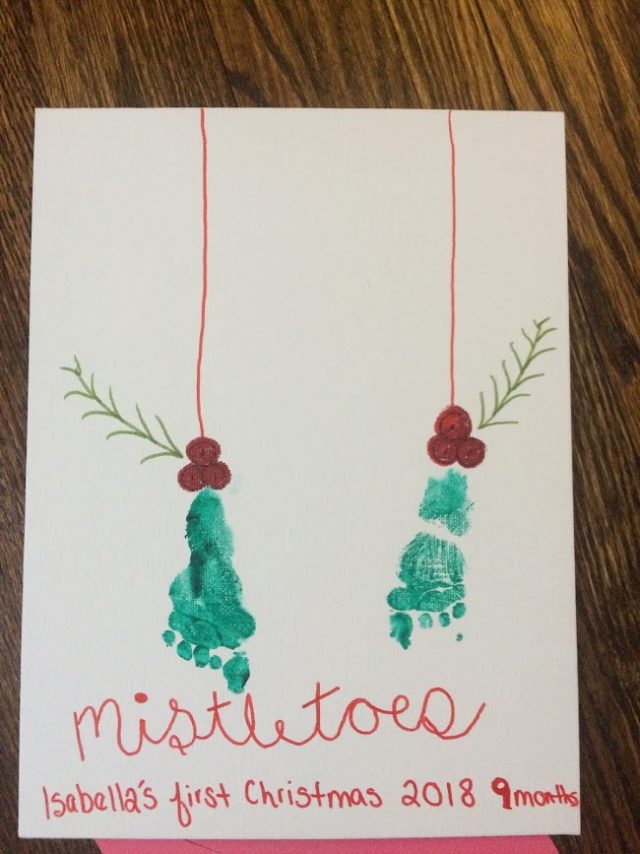 Mistletoes
Isabella's first Christmas 2018 9months